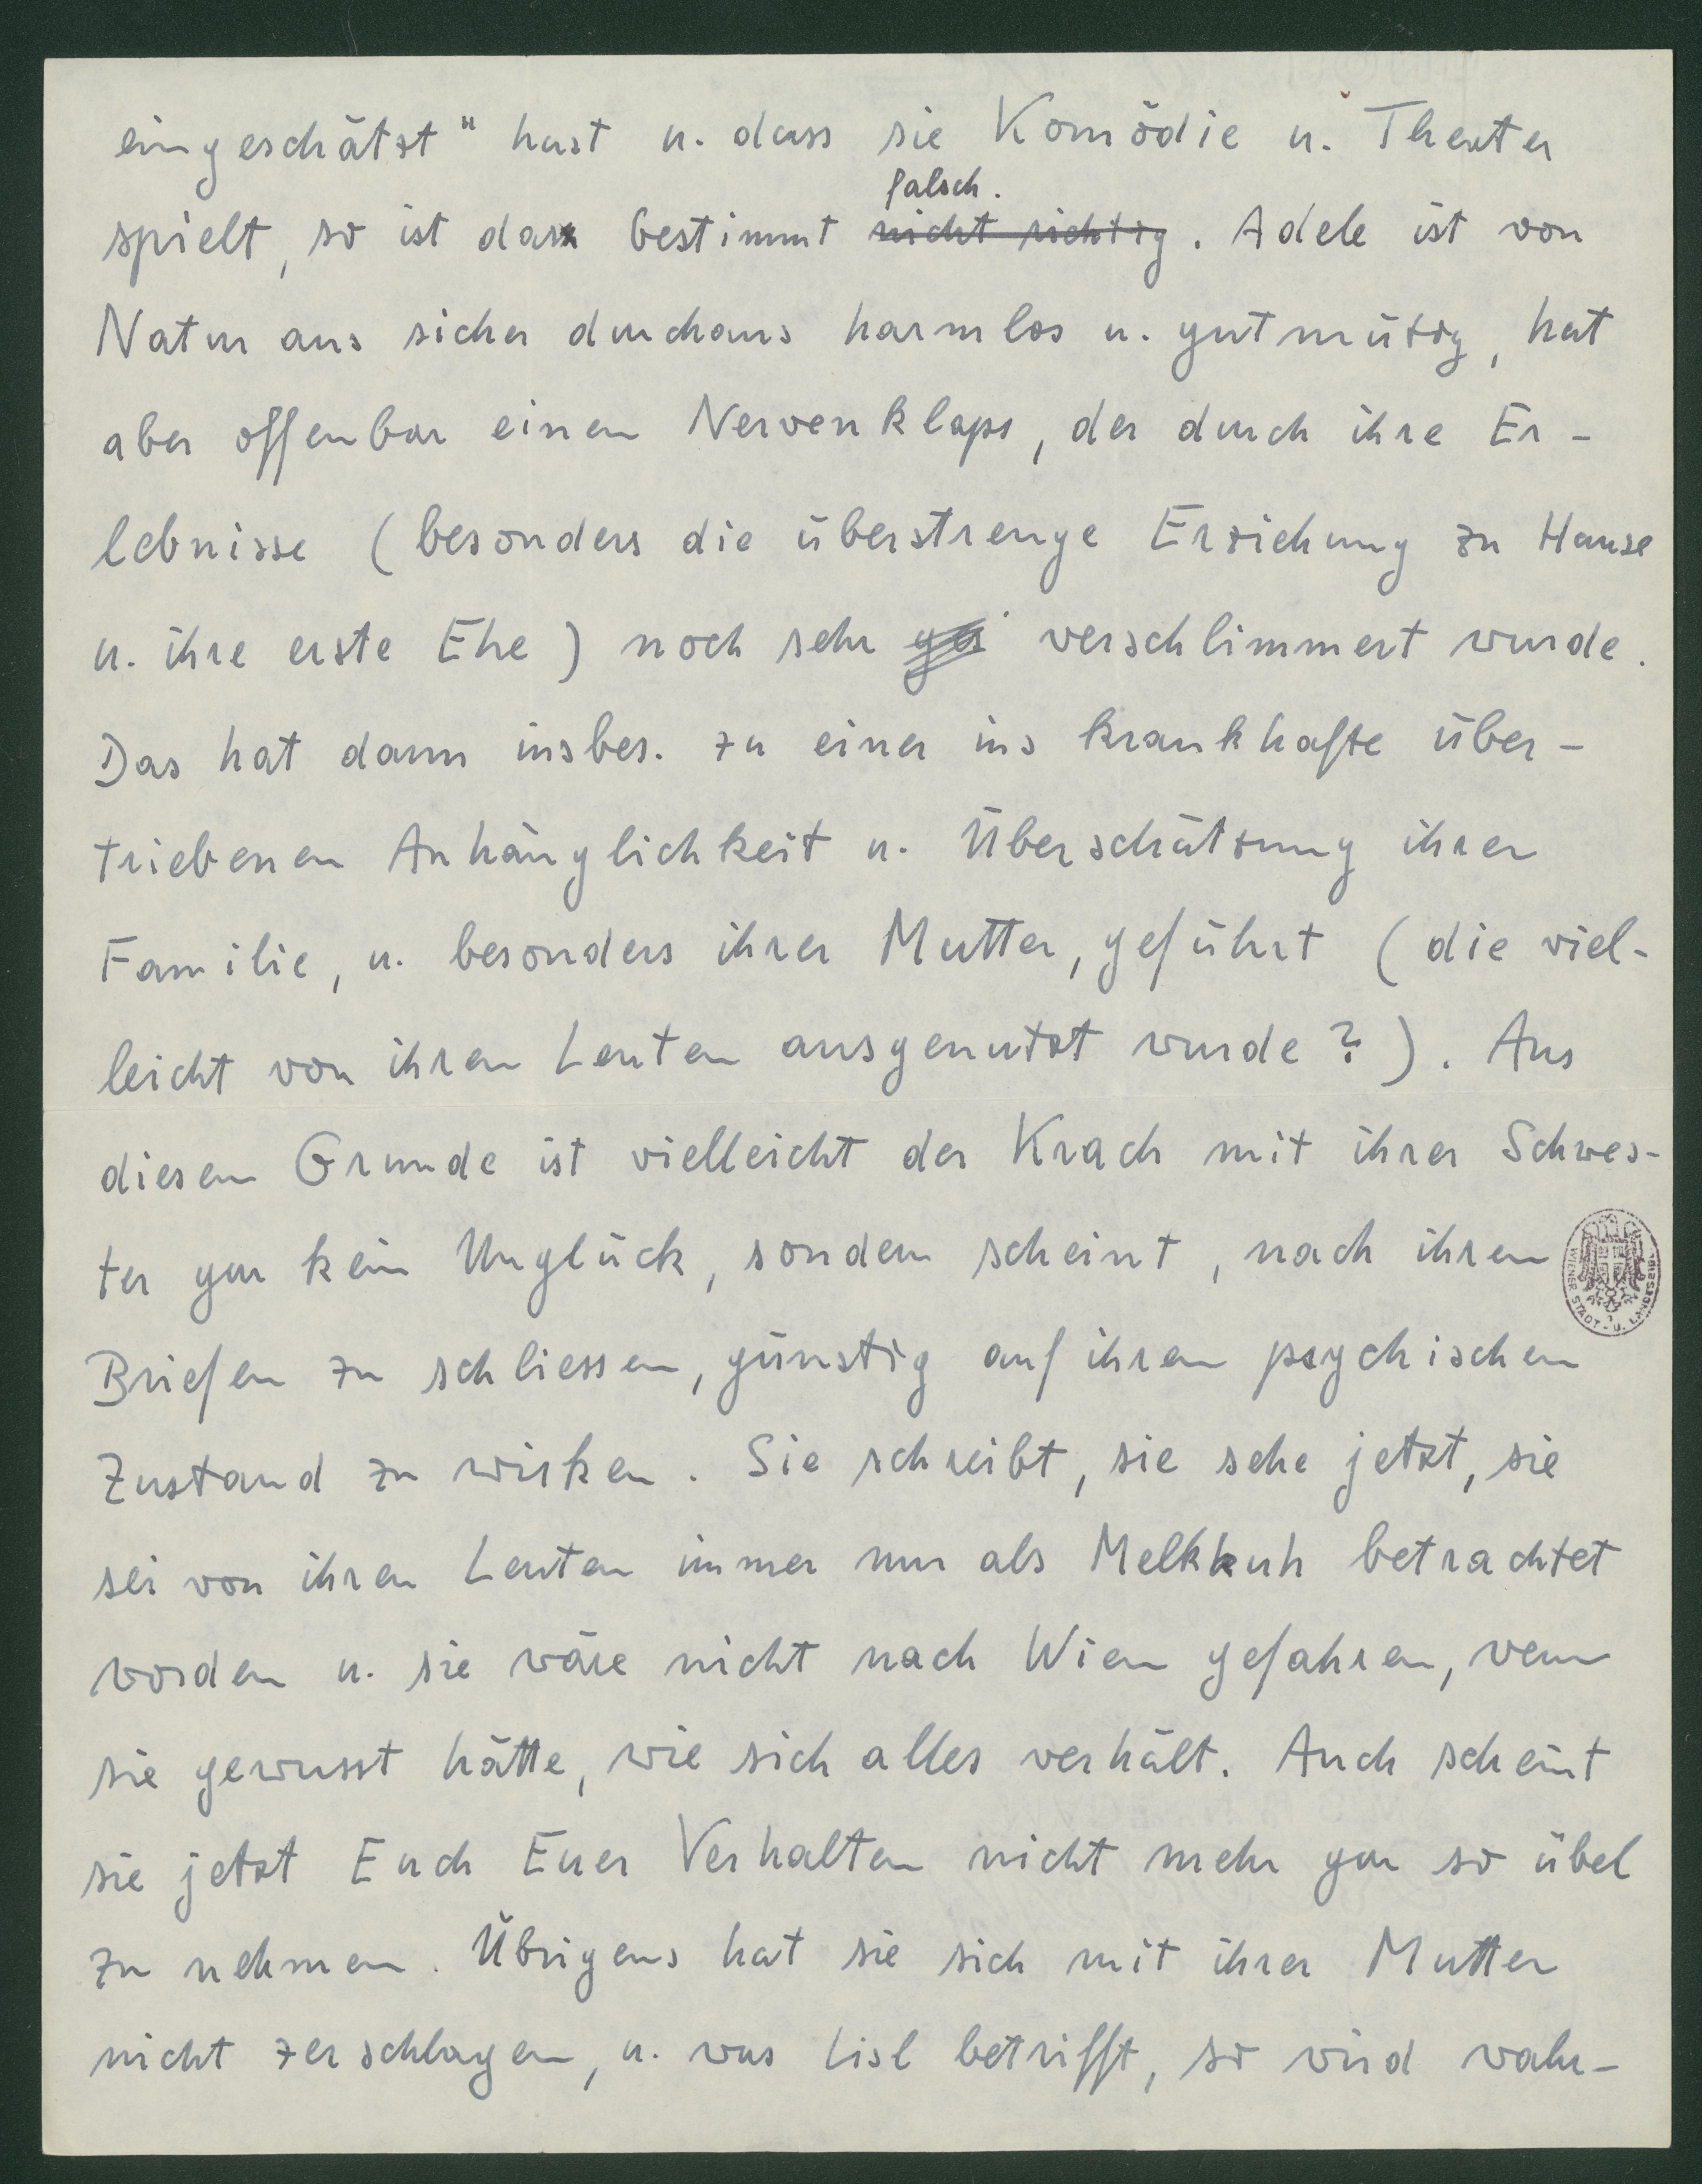 eingeschätzt" hast u. dass sie Komödie u. Theater
falsch.
spielt, so ist das bestimmt nicht richtig. Adele ist von
Natur aus sicher durchaus harmlos u. gutmütig, hat
aber offenbar einen Nervenklaps, der durch ihre Er-
lebnisse (besonders die überstrenge Erziehung zu Hause
u. ihre erste Ehe) noch sehr verschlimmert wurde.
Das hat dann insbes. zu einer ins krankhafte über-
triebenen Anhänglichkeit u. Überschätzung ihrer
Familie, u. besonders ihrer Mutter, geführt (die viel-
leicht von ihren Leuten ausgenutzt wurde?). Aus
diesem Grunde ist vielleicht der Krach mit ihrer Schwes-
ter gar kein Unglück, sondern scheint, nach ihren
Briefen zu schliessen, günstig auf ihren psychischen
Zustand zu wirken. Sie schreibt, sie sehe jetzt, sie
sei von ihren Leuten immer nur als Melkkuh betrachtet
worden u. sie wäre nicht nach Wien gefahren, wenn
sie gewusst hätte, wie sich alles verhält. Auch scheint
sie jetzt Euch Euer Verhalten nicht mehr gar so übel
zu nehmen. Übrigens hat sie sich mit ihrer Mutter
nicht zerschlagen, u. was Lisl betrifft, so wird wahr-
WIENER STADT- U. LANDESBIBL.